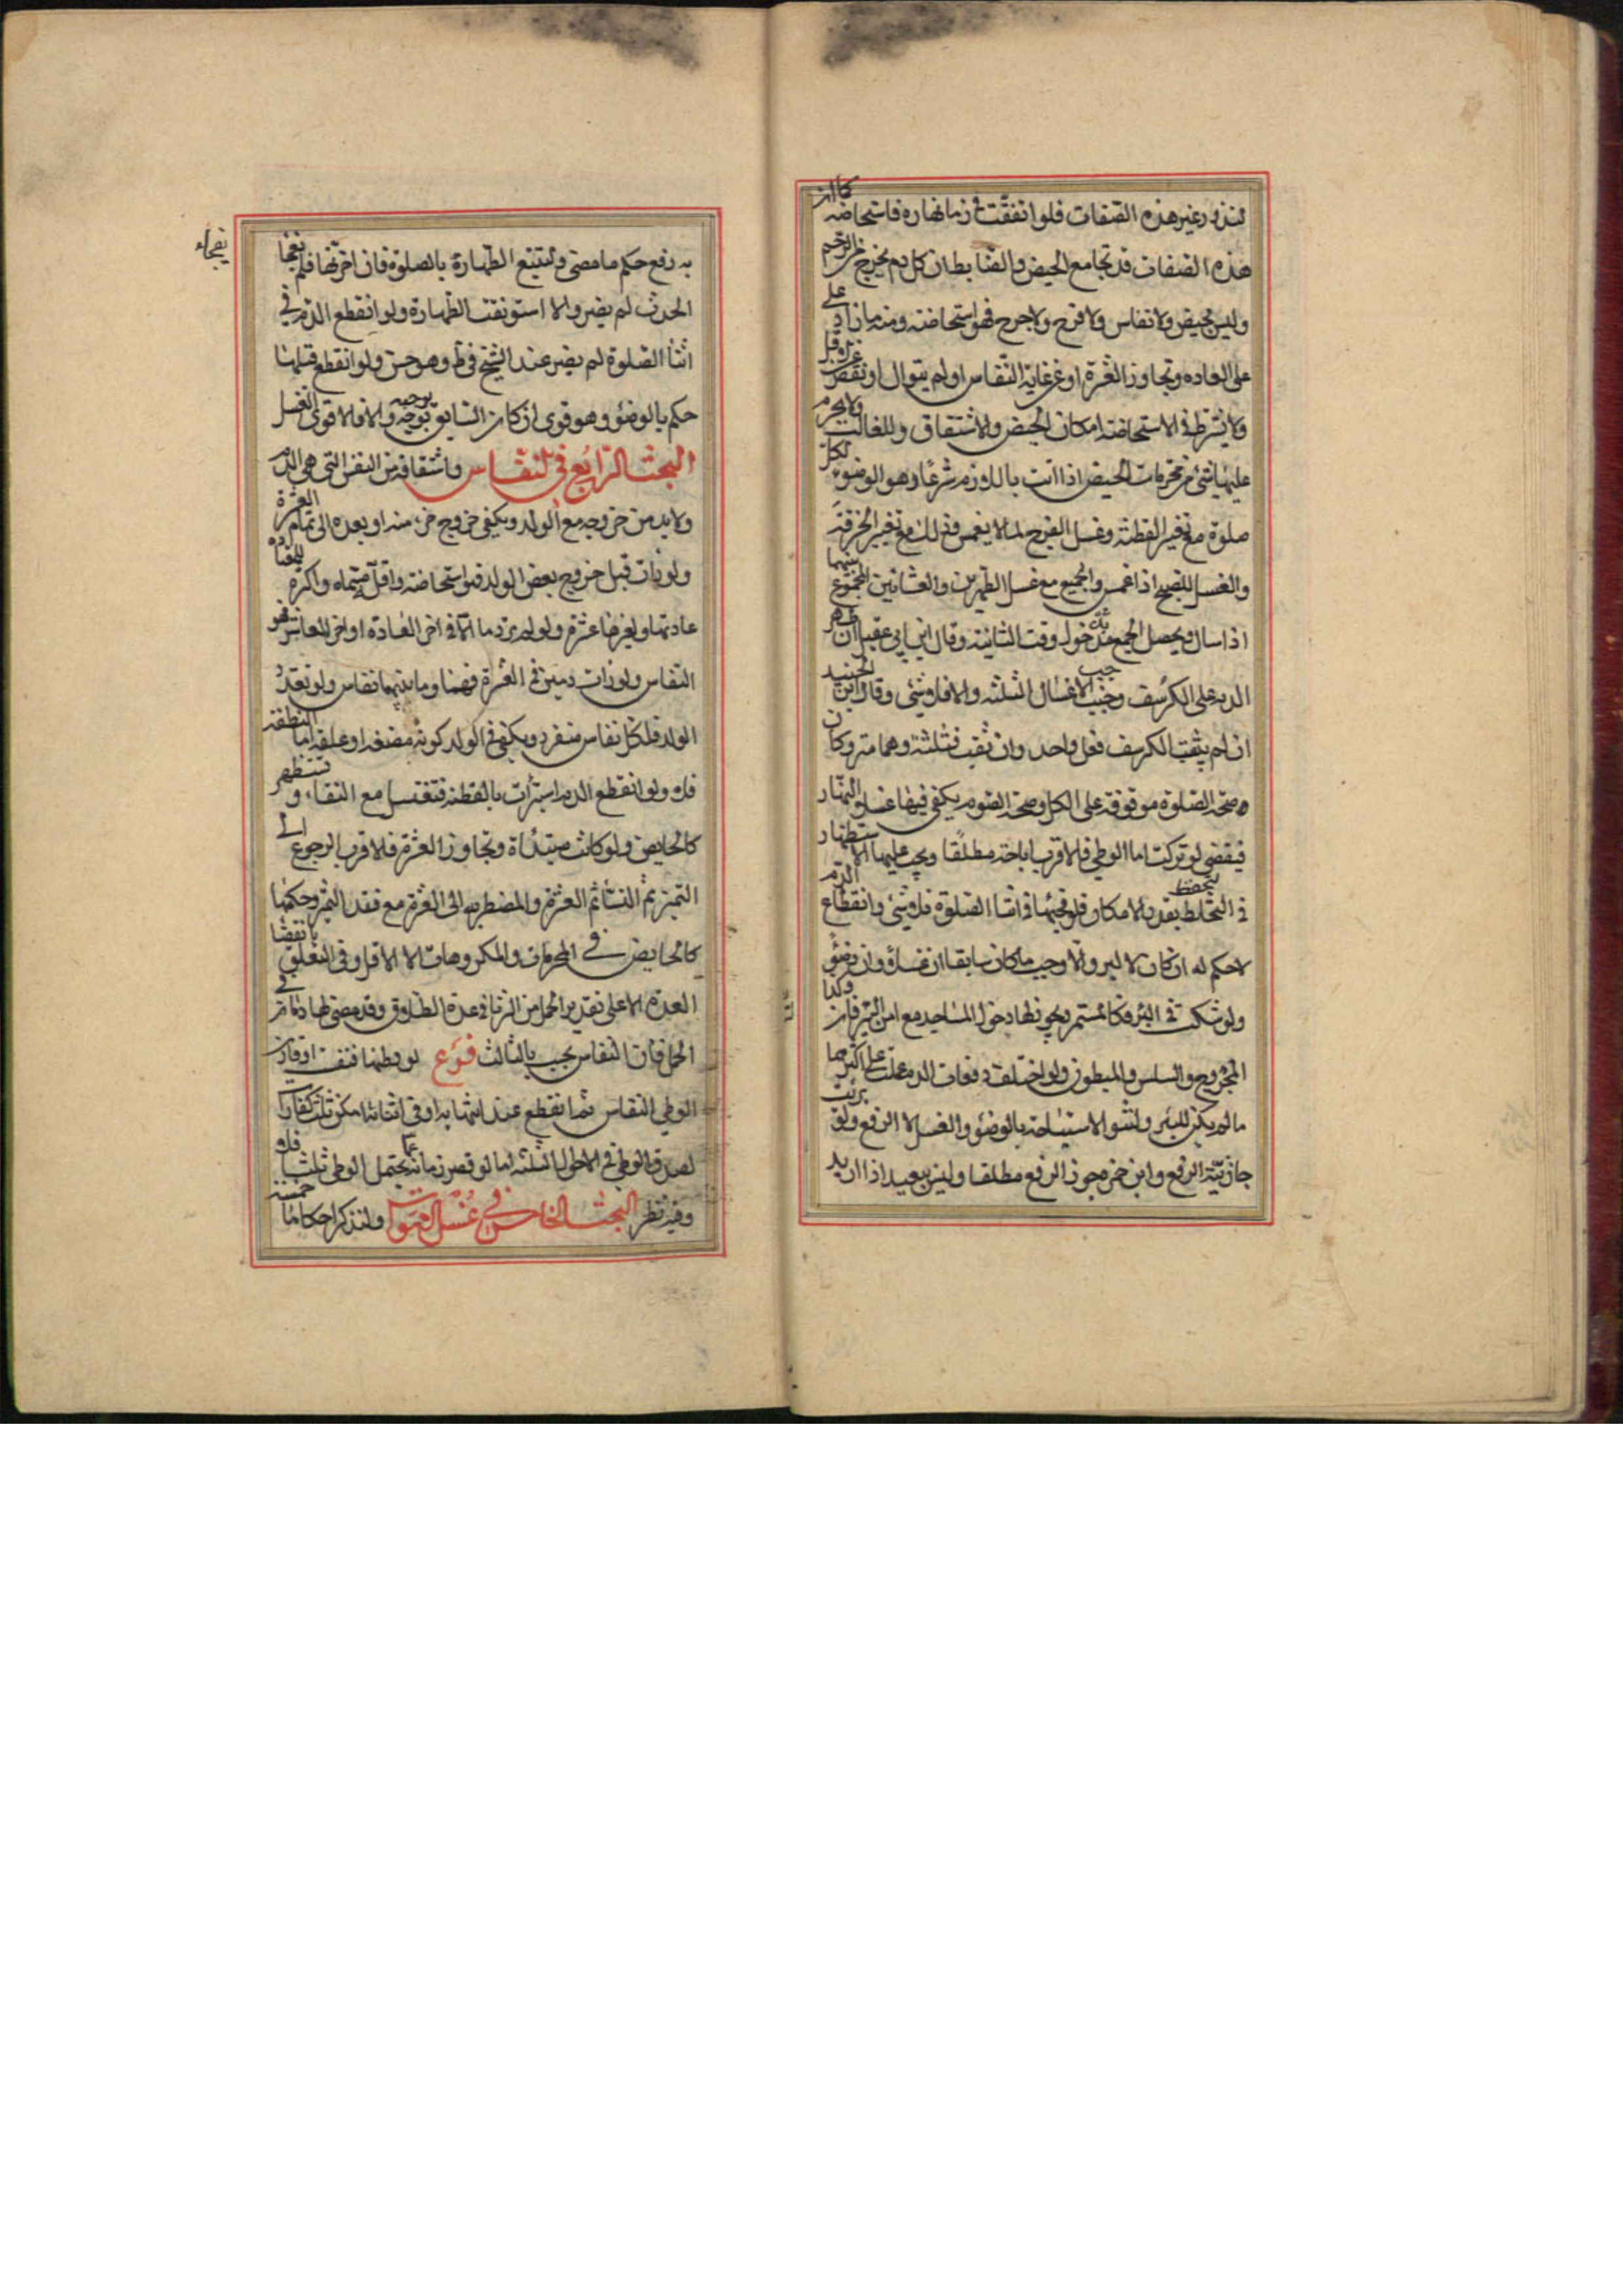 تندر وغير هذه الصفات فلو اتفقت في زمانها ره فاستحاضة كما ان
هذه الصفات قد تجامع الحيض والضابط ان كل دم يخرج من الرحم
وليس بحيض ولا نفاس ولا قرح ولا جرح فهو استحاضة ومنه ما زاد على
على العاده وتجاوز العشرة او عن غاية النفاس او لم يتوال او نقص
ولا يشترط في الاستحاضة امكان الحيض والاشتقاق وللغالب ولا يحرم
عليها شئ من محرمات الحيض اذا اتت باللازم شرعا وهو الوضوء لكل
صلوة مع تغيير القطنة وغسل الفرج لما لا يغمس وذلك مع تغيير الخرقة
والغسل للصبح اذا غمس والجميع مع غسل الظهرين والعشائين للجمع بينهما
اذا سال ويحصل الجمع بدخول وقت الثانية وقال ابن ابي عقيل ان ظهر
الدم على الكرسف وجب الاغسال الثلثة والا فلا شئ وقال ابن الجنيد
ان لم يثقب الكرسف فغسل واحد وان ثقب فثلثة وهما متروكان
وصحة الصلوة موقوفة على الكل وصحة الصوم يكفي فيها غسل النهار
فيقضي لو تركت اما الوطي فالاقرب اباحته مطلقا ويجب عليها الاستظهار
في التحفظ بقدر الامكان فلو فجئها في اثنا الصلوة فلا شئ وانقطاع الدم
لا حكم له ان كان لا لبرء والا وجب ما كان سابقا ان غسلا وان وضوء
ولو شكت في البرء فكالمستمر ويجوز لها دخول المساجد مع امن التلويث وكذا
المجروح والسلس والمبطون ولو اختلف دفعات الدم عملت على اكثرها
ما لم يكن للبرء ولتنو الاستباحة بالوضوء والغسل لا الرفع ولو برئت
جاز نية الرفع وابن حمزه يجوز الرفع مطلقا وليس ببعيد اذا اريد
به رفع حكم ما مضى ولتتبع الطهارة بالصلوة فان اخرتها فلم يفجأها
يفجاء
الحدث لم يضر والا استونفت الطهارة ولو انقطع الدم في
اثنا الصلوة لم يضر عند الشيخ في ط وهو حسن ولو انقطع قبلها
حكم بالوضوء وهو قوي ان كان السابق يوجبه والا فالاقوى الغسل
البحث الرابع في النفاس واشتقاقه من النفس التي هي الدم
ولا بد من خروجه مع الولد ويكفي خروج جزء منه او بعده الى تمام العشرة
ولو رات قبل خروج بعض الولد فهو استحاضة واقله مسماه واكثره للمعتاده
عادتها ولغيرها عشرة ولو لم تر دما الا في اخر العادة او اخر العاشر فهو
النفاس ولو رات دمين في العشرة فهما وما بينهما نفاس ولو تعدد
الولد فلكل نفاس منفرد ويكفي في الولد كونه مضغة او علقة اما النطفة
فلا ولو انقطع الدم استبرأت بالقطنة فتغتسل مع النقاء وتستظهر
كالحايض ولو كانت مبتدأة وتجاوز العشرة فالاقرب الرجوع الى
التميز ثم النساء ثم العشرة والمضطربه الى العشرة مع فقد التميز وحكمها
كالحايض في المحرمات والمكروهات الا الاقل وفي التعلق بانقضا
العدة الا على تقدير الحمل من الزنا في عدة الطلاق وقد مضى لها دمان في
الحمل فان النفاس يحسب بالثالث فرع لو وطئها فنفست او قارن
الوطي النفاس ثم انقطع عند انتهائه او في اثنائه امكن ثلث كفارات
لصدق الوطي في الاحوال الثلثة اما لو قصر زمانه عما يحتمل الوطي ثلثا فلا
وفيه نظر البحث الخامس في غسل الاموات ولنذكر احكاما خمسة